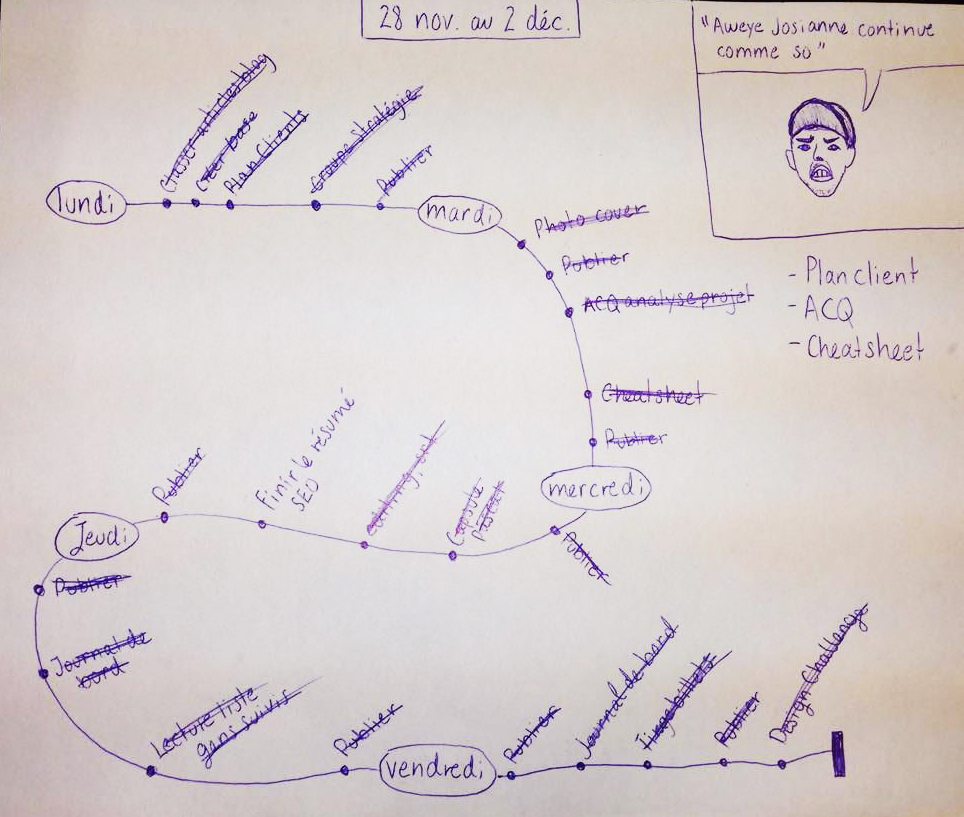 28 nov. au 2 déc.
"Aweye Josianne continue
comme so"
lundi
Classer articles blog
Créer base
Plan Clients
Groupe Stratégie
Publier
mardi
Photo cover
Publier
ACQ analyse projet
Cheatsheet
Publier
- Plan client
- ACQ
- Cheatsheet
mercredi
Publier
Capsule
Finir le résumé
SEO
Publier
Jeudi
Publier
Journal de
bord
Lecture liste
gans suivis
Publier
vendredi
Publier
Journal de bord
Tirage billets
Publier
Design Challenge